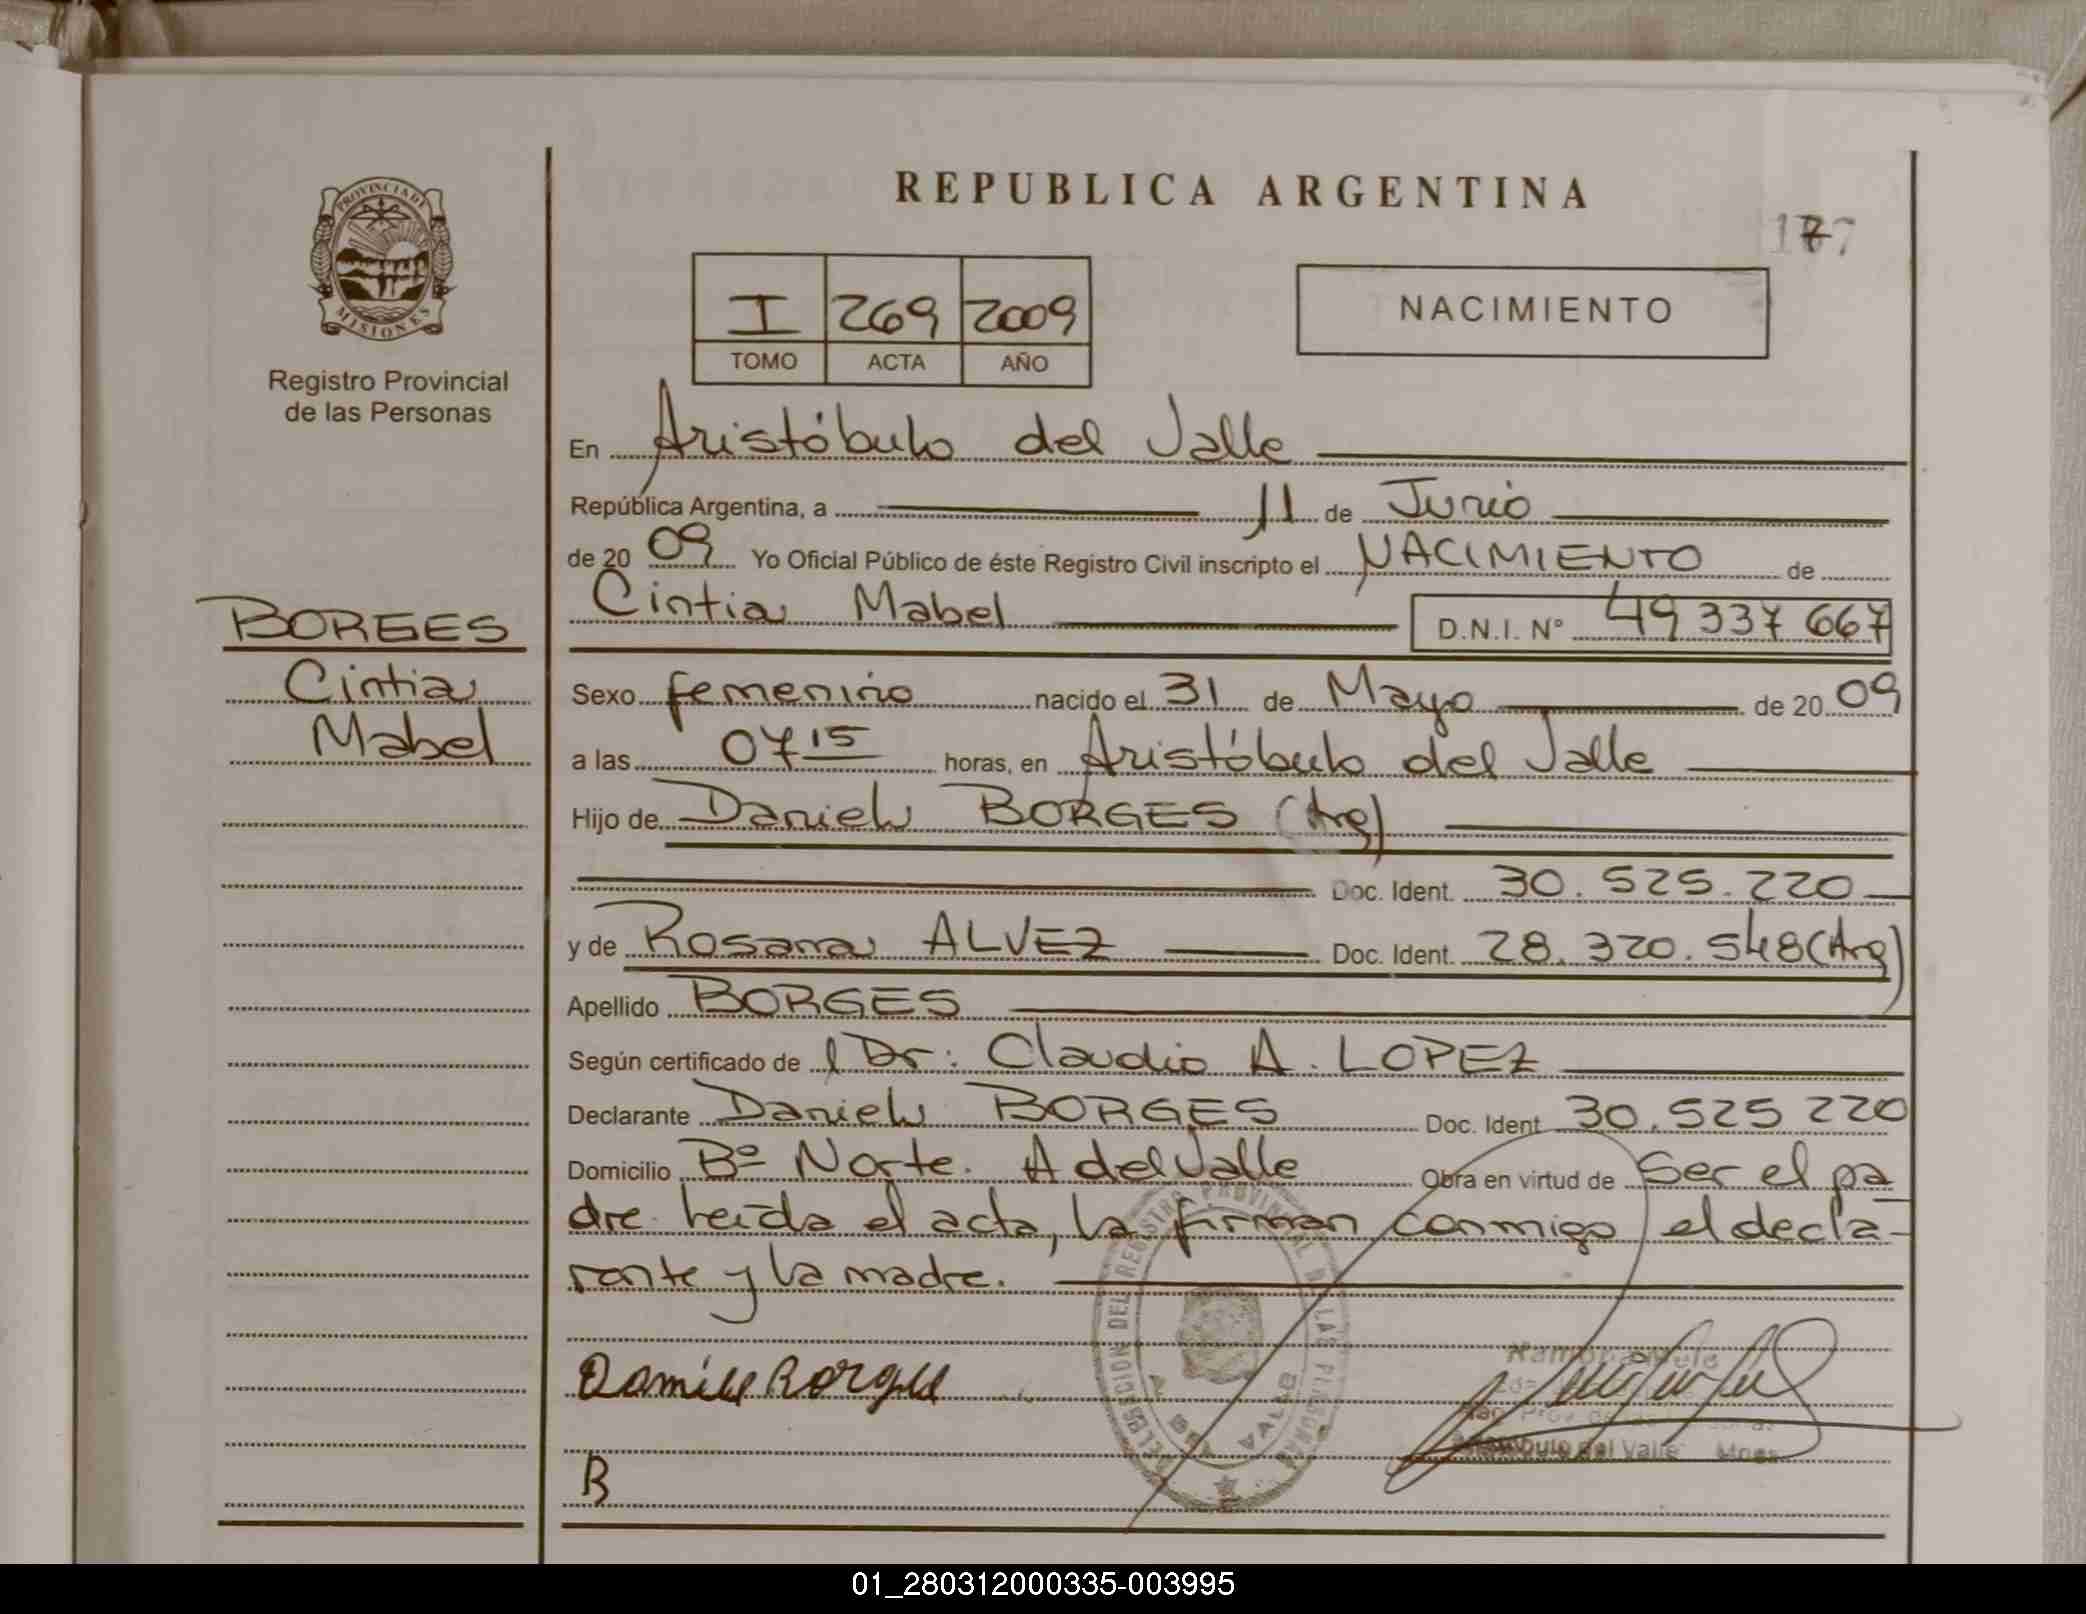 REPUBLICA ARGENTINA
177
PROVINCIA DE
MISIONES
Registro Provincial
de las Personas
I 269 2009
TOMO ACTA AÑO
NACIMIENTO
En Aristóbulo del Valle
República Argentina, a 11 de Junio
de 20 09 Yo Oficial Público de éste Registro Civil inscripto el NACIMIENTO de
Cintia Mabel D.N.I. N° 49 337 667
BORGES
Cintia
Mabel
Sexo femenino nacido el 31 de Mayo de 20 09
a las 07 15 horas, en Aristóbulo del Valle
Hijo de Daniel BORGES (Arg)
Doc. Ident. 30.525.220
y de Rosana ALVEZ Doc. Ident. 28.320.548 (Arg)
Apellido BORGES
Según certificado de l Dr: Claudio A. LOPEZ
Declarante Daniel BORGES Doc. Ident 30.525 220
Domicilio Bº Norte. A del Valle Obra en virtud de Ser el pa
dre. Leída el acta, la firman conmigo el decla-
rante y la madre.
DEL REGISTRO PROVINCIAL DE LAS PERSONAS
Daniel Borges
del Valle Mnes
B
01_280312000335-003995